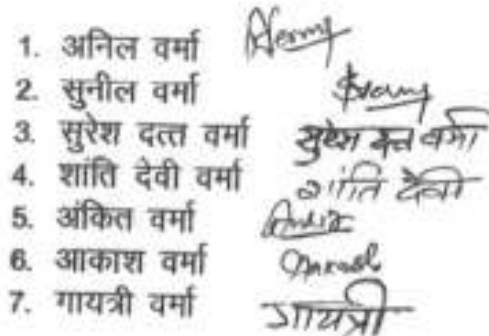 1. अनिल वर्मा
2. सुनील वर्मा
3. सुरेश दत्त वर्मा सुरेश दत्त वर्मा
4. शांति देवी वर्मा शांति देवी
5. अंकित वर्मा
6. आकाश वर्मा
7. गायत्री वर्मा गायत्री